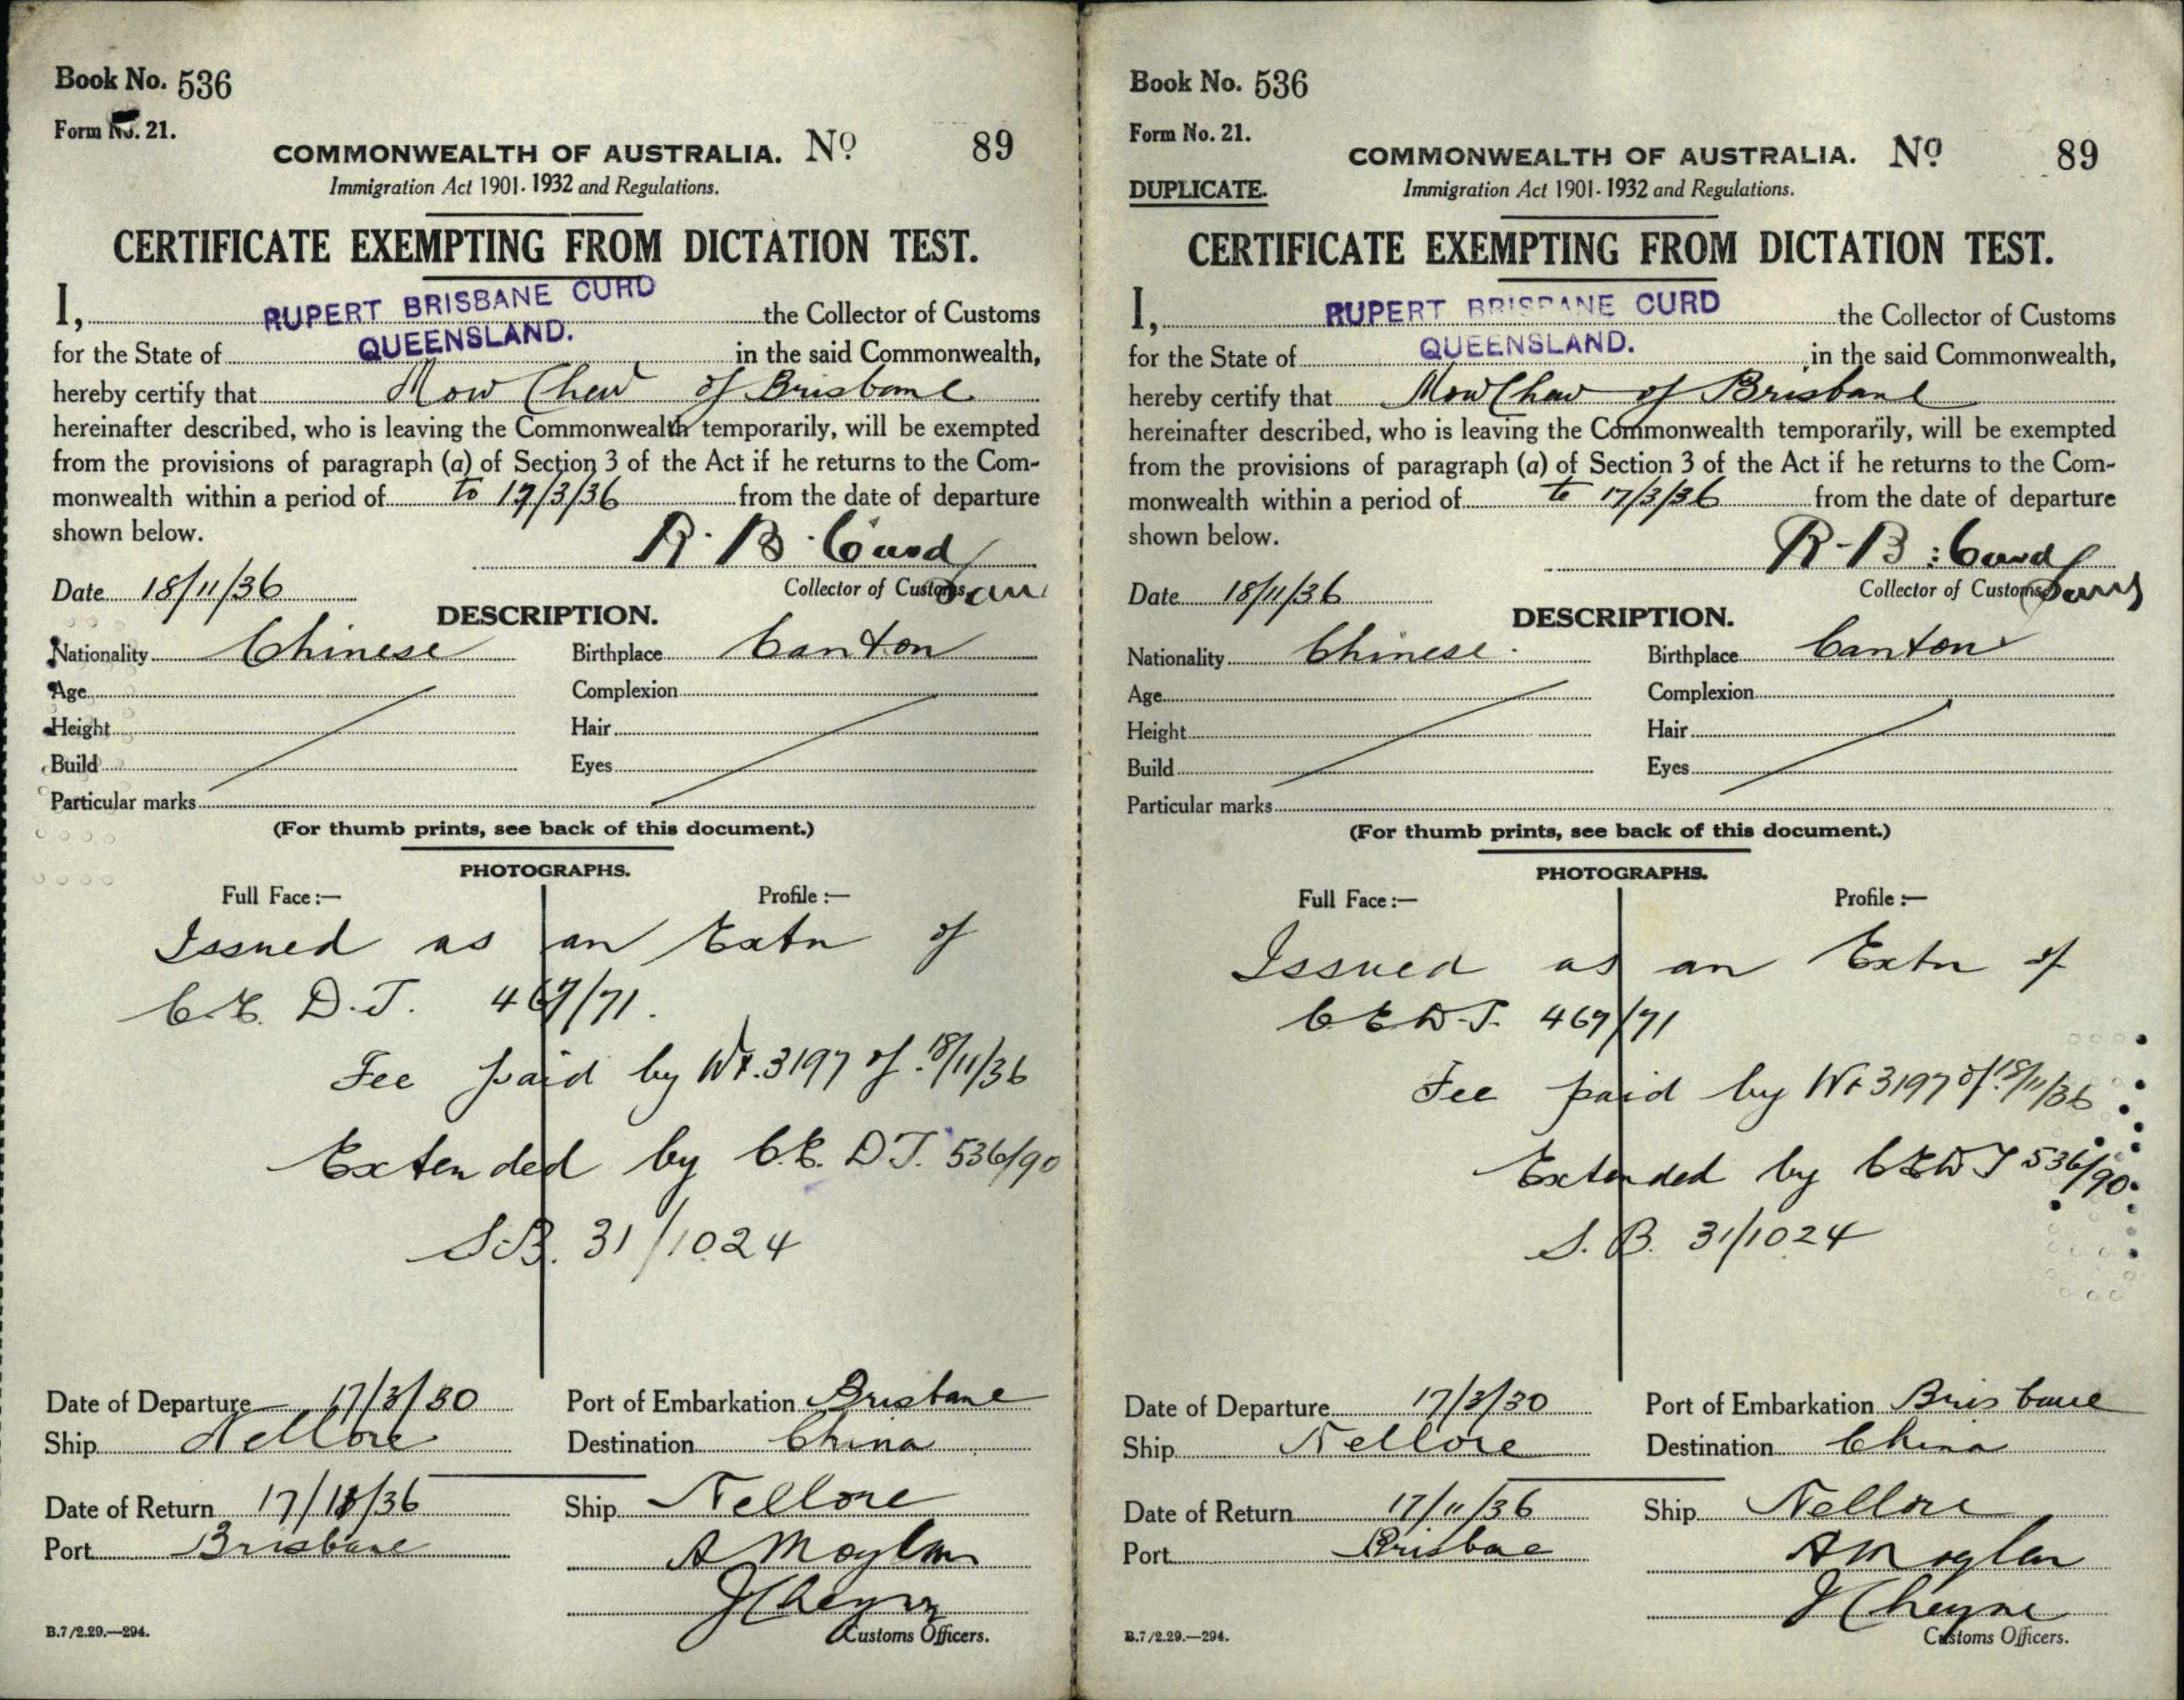 Book No. 536
Form No. 21.
COMMONWEALTH OF AUSTRALIA. No 89
Immigration Act 1901-1932 and Regulations.
CERTIFICATE EXEMPTING FROM DICTATION TEST.
I, RUPERT BRISBANE CURD the Collector of Customs
for the State of QUEENSLAND. in the said Commonwealth,
hereby certify that Mow Chew of Brisbane
hereinafter described, who is leaving the Commonwealth temporarily, will be exempted
from the provisions of paragraph (a) of Section 3 of the Act if he returns to the Com-
monwealth within a period of to 17/3/36 from the date of departure
shown below.
R. B. Curd
Date 18/11/36 Collector of Customs
DESCRIPTION.
Nationality Chinese Birthplace Canton
Age Complexion
Height Hair
Build Eyes
Particular marks
(For thumb prints, see back of this document.)
PHOTOGRAPHS.
Full Face:— Profile:—
Issued as an Extn of
C.E. D.T. 467/71.
Fee paid by Wt. 3197 of 18/11/36
Extended by C.E. D.T. 536/90
S.B. 31/1024
Date of Departure 17/3/30 Port of Embarkation Brisbane
Ship Nellore Destination China
Date of Return 17/11/36 Ship Nellore
Port Brisbane A Moylan
J Cheyne
B.7/2.29.—294. Customs Officers.
Book No. 536
Form No. 21.
COMMONWEALTH OF AUSTRALIA. No 89
DUPLICATE. Immigration Act 1901-1932 and Regulations.
CERTIFICATE EXEMPTING FROM DICTATION TEST.
I, RUPERT BRISBANE CURD the Collector of Customs
for the State of QUEENSLAND. in the said Commonwealth,
hereby certify that Mow Chew of Brisbane
hereinafter described, who is leaving the Commonwealth temporarily, will be exempted
from the provisions of paragraph (a) of Section 3 of the Act if he returns to the Com-
monwealth within a period of to 17/3/36 from the date of departure
shown below.
R. B. Curd
Date 18/11/36 Collector of Customs
DESCRIPTION.
Nationality Chinese Birthplace Canton
Age Complexion
Height Hair
Build Eyes
Particular marks
(For thumb prints, see back of this document.)
PHOTOGRAPHS.
Full Face:— Profile:—
Issued as an Extn of
C E D.T. 467/71
Fee paid by Wt 3197 of 18/11/36
Extended by C E D T 536/90
S. B. 31/1024
Date of Departure 17/3/30 Port of Embarkation Brisbane
Ship Nellore Destination China
Date of Return 17/11/36 Ship Nellore
Port Brisbane A Moylan
J Cheyne
B.7/2.29.—294. Customs Officers.